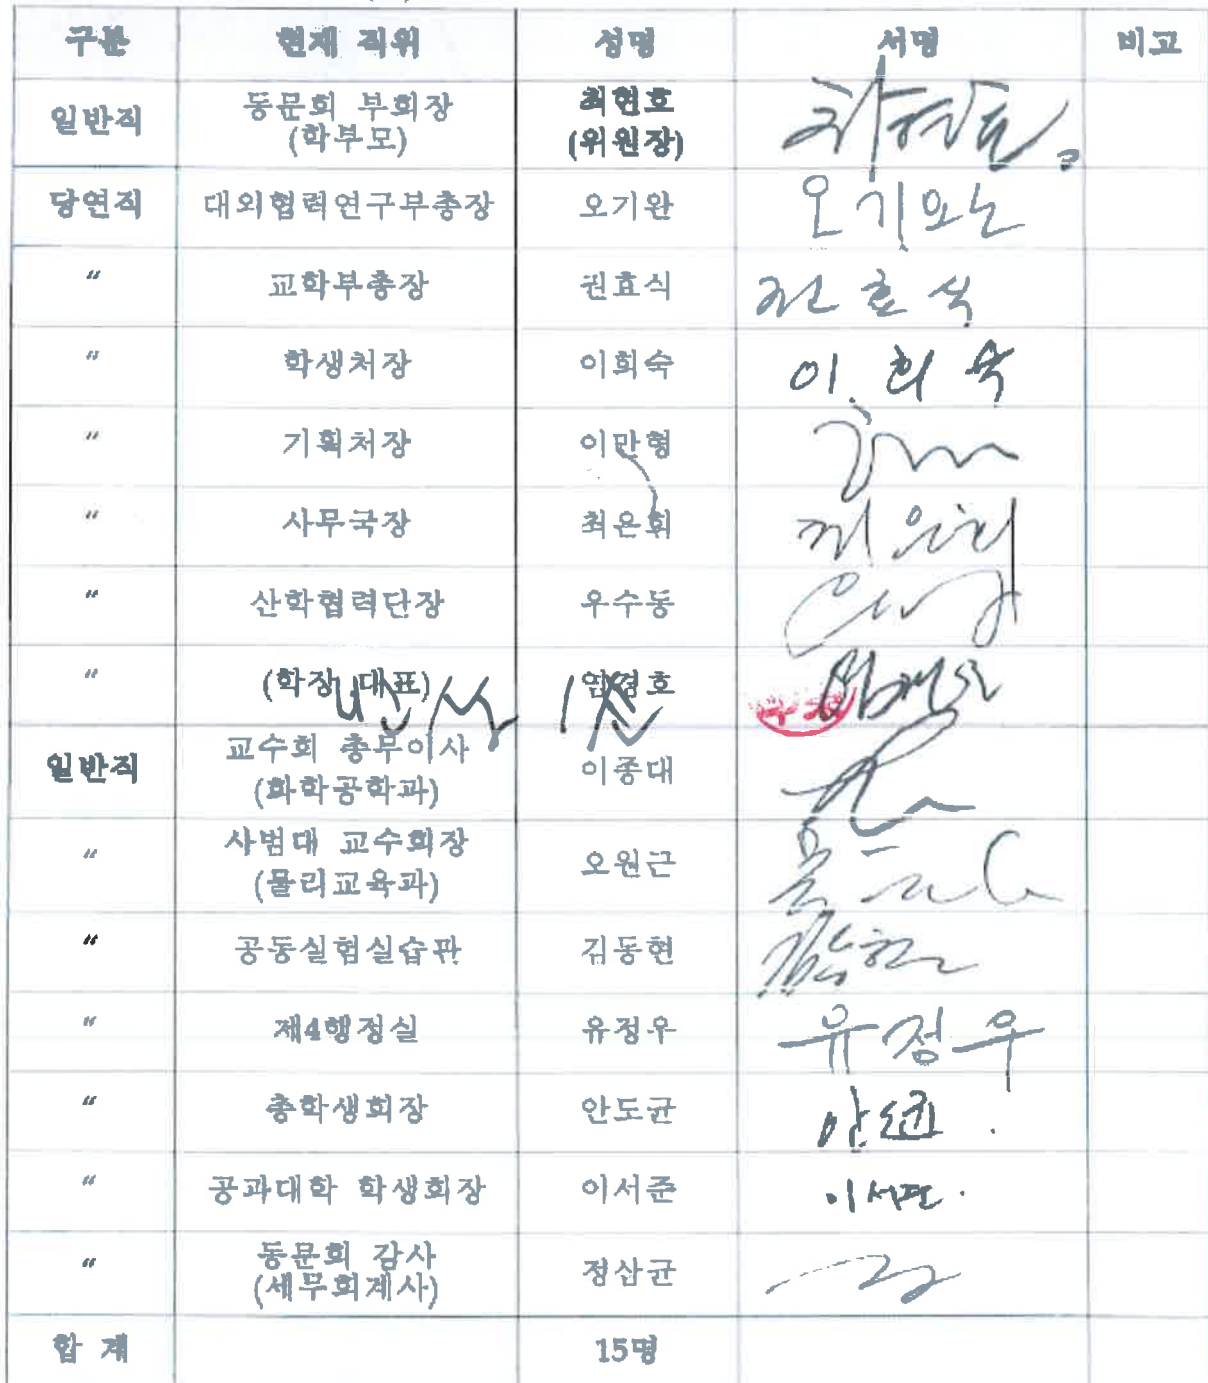 구분 현재 직위 성명 서명 비고
일반직 동문회 부회장 최현호 최현호
(학부모) (위원장)
당연직 대외협력연구부총장 오기완 오기완
〃 교학부총장 권효식 권효식
〃 학생처장 이희숙 이희숙
〃 기획처장 이만형
〃 사무국장 최은희 최은희
〃 산학협력단장 우수동
〃 (학장 대표) 염경호
일반직 교수회 총무이사 이종대
(화학공학과)
〃 사범대 교수회장 오원근
(물리교육과)
〃 공동실험실습관 김동현 김동현
〃 제4행정실 유정우 유정우
〃 총학생회장 안도균 안도균
〃 공과대학 학생회장 이서준 이서준.
〃 동문회 감사 정삼균
(세무회계사)
합 계 15명